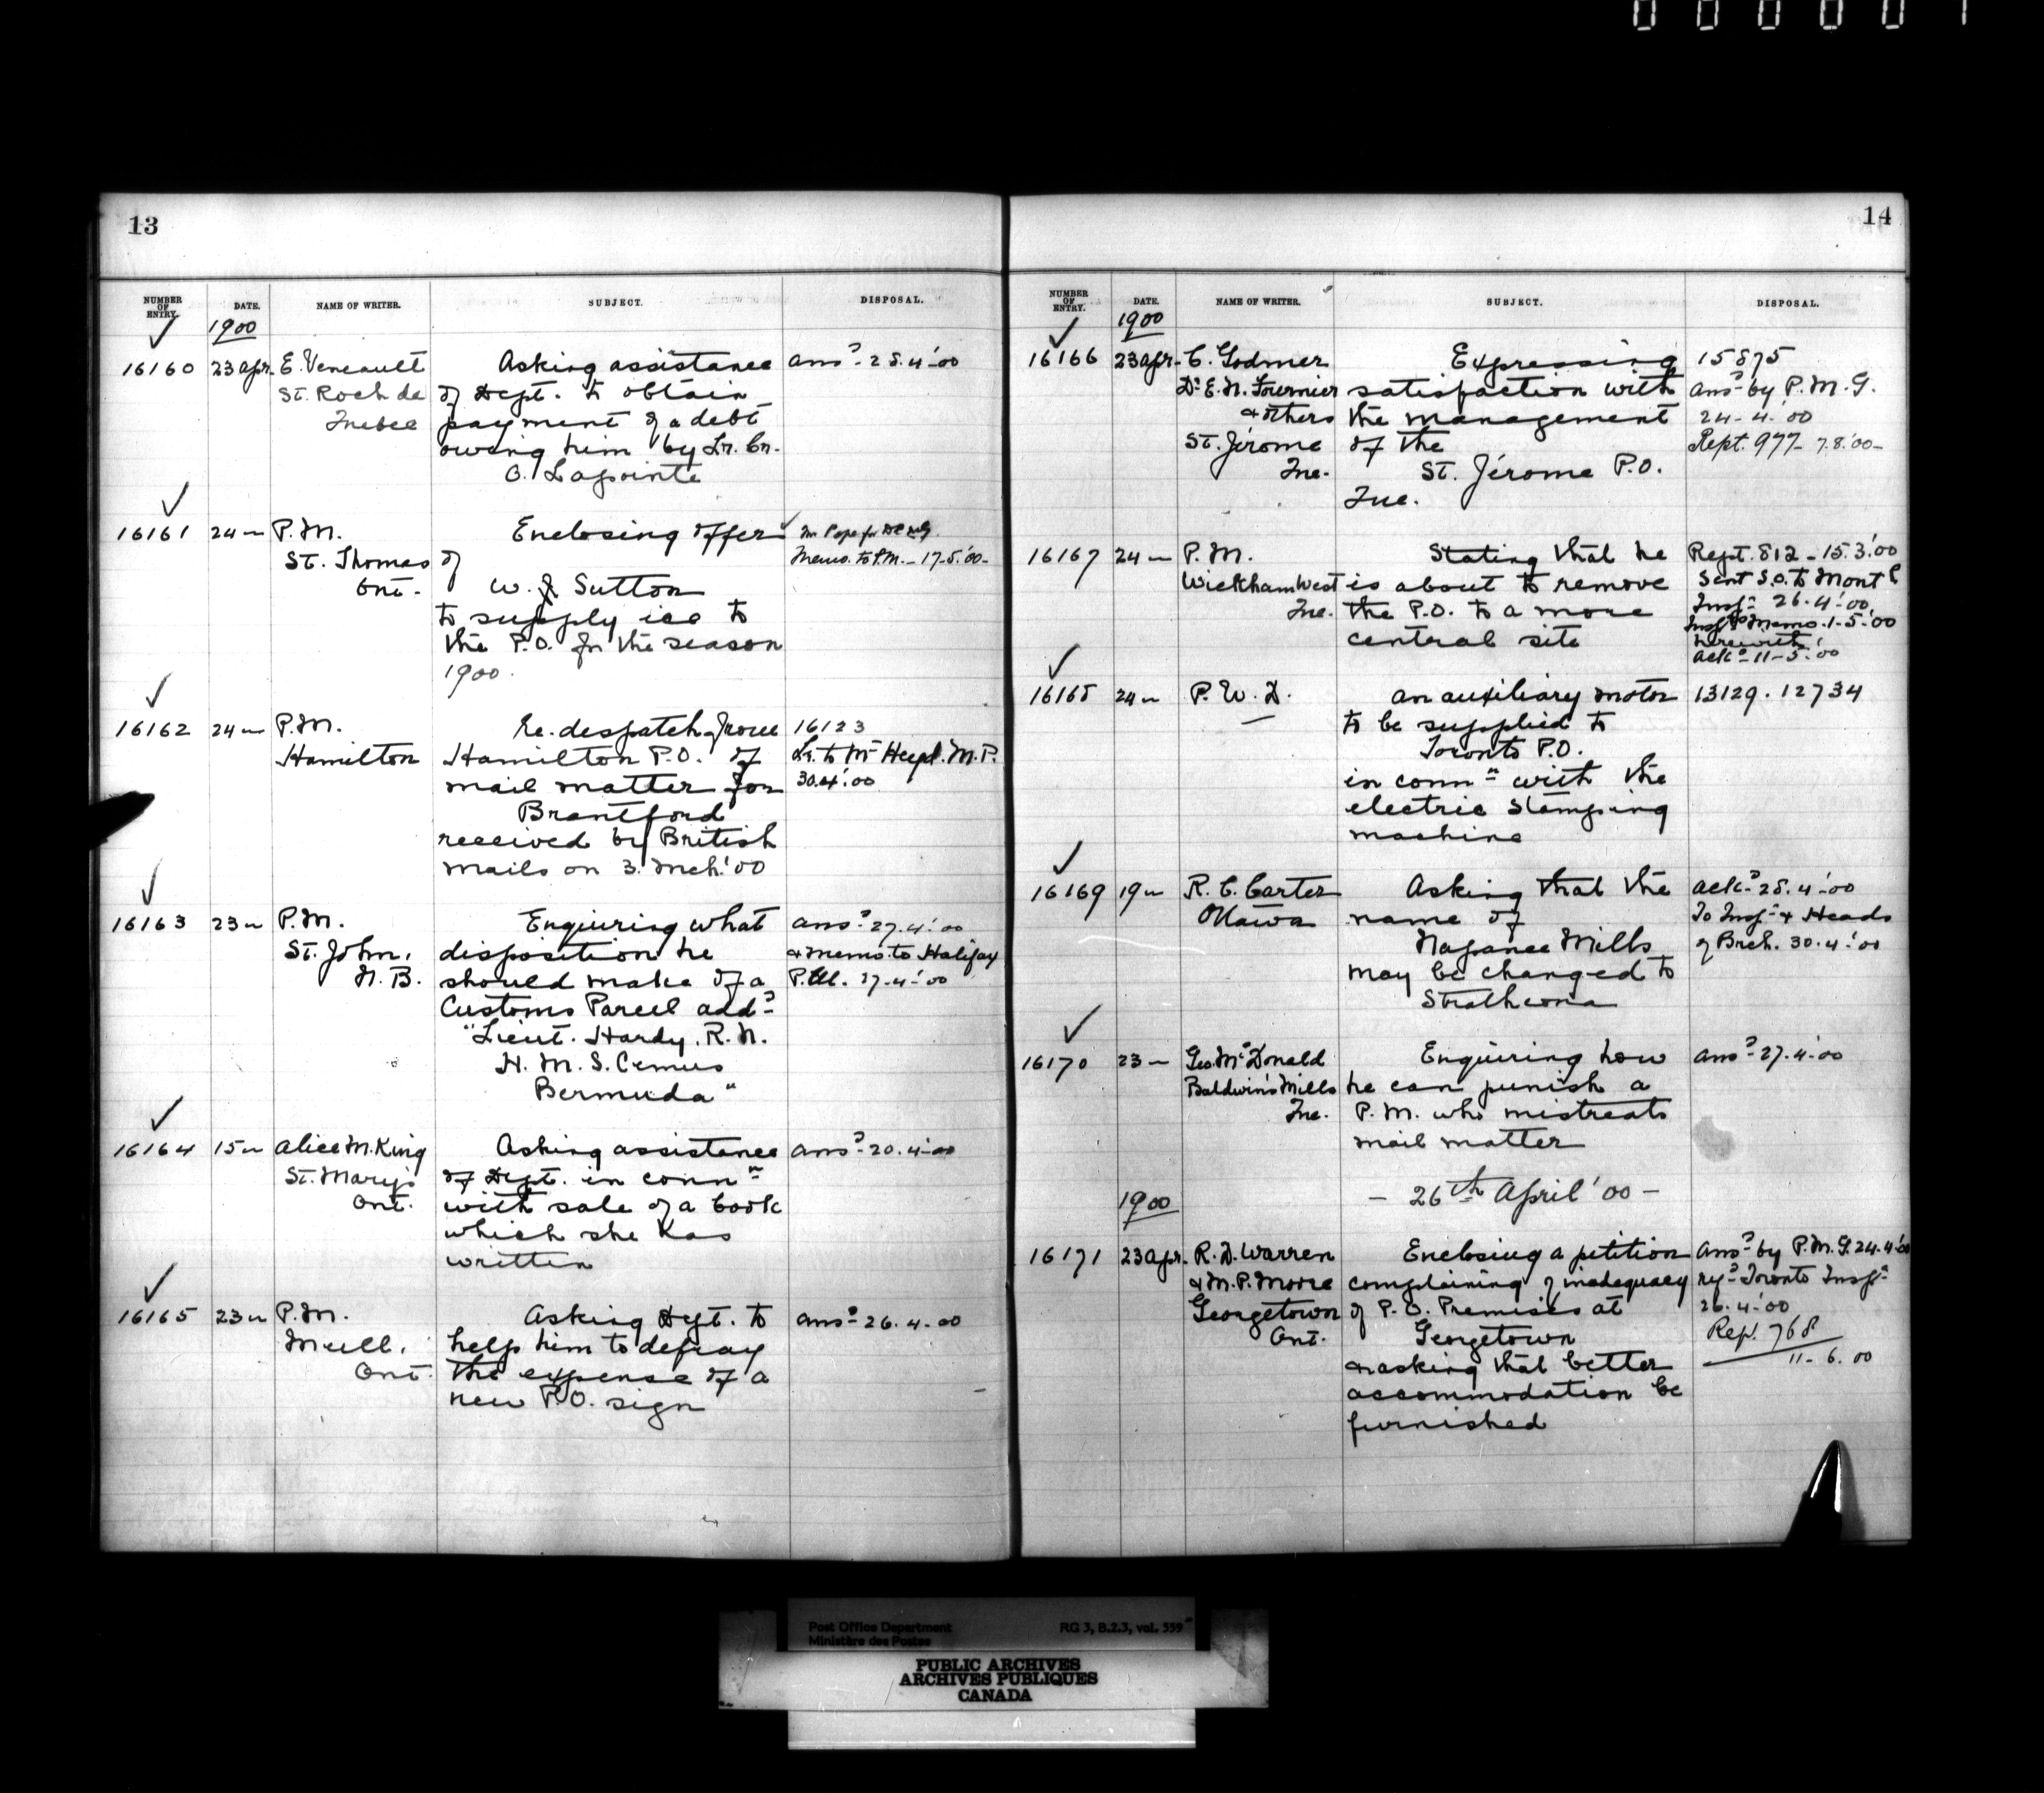 13
NUMBER OF ENTRY. DATE. NAME OF WRITER. SUBJECT. DISPOSAL.
1900
16160 23 apr. E. Veneault Asking assistance ansd 28.4.'00
St. Roch de of Dept. to obtain
Quebec payment of a debt
owing him by Lr. Cr.
O. Lapointe
16161 24 " P.M. Enclosing offer Mr Pope for
St. Thomas of Memo. to P.M. - 17-5.'00-
Ont. W. J. Sutton
to supply ice to
the P.O. for the season
1900.
16162 24 " P.M. Re. despatch from 16123
Hamilton Hamilton P.O. of Lr. to Mr Heyd. M.P.
mail matter for 30.4.'00
Brantford
received by British
mails on 3. Mch.'00
16163 23 " P.M. Enquiring what ansd 27.4.'00
St. John, disposition he & memo. to Halifax
N.B. should make of a P.M. 27-4-'00
Customs Parcel addd
"Lieut. Hardy, R.N.
H.M.S. Cemus
Bermuda"
16164 15 " Alice M. King Asking assistance ansd 20.4-00
St. Marys of Dept. in connn
Ont. with sale of a book
which she has
written
16165 23 " P.M. Asking Dept. to ansd 26.4-00
Ont. help him to defray
the expense of a
new P.O. sign
14
NUMBER OF ENTRY. DATE. NAME OF WRITER. SUBJECT. DISPOSAL.
1900
16166 23 apr. C. Godmer Expressing 15875
Dr E.N. Fournier satisfaction with ansd by P.M.G.
& others the management 24-4-'00
St. Jérome of the Rept. 977- 7.8.'00-
Que. St. Jérome P.O.
Que.
16167 24 " P.M. Stating that he Rept. 812 - 15.3.'00
Wickham West is about to remove Sent S.O. to Montl
Que. the P.O. to a more Inspr 26.4.'00
central site Inspr's Memo. 1-5-'00
herewith
ackd 11-5.'00
16168 24 " P.W.D. An auxiliary motor 13129. 12734
to be supplied to
Toronto P.O.
in connn with the
electric stamping
machine
16169 19 " R.C. Carter Asking that the ackd 28.4-'00
Ottawa name of To Inspr & Heads
Napanee Mills of Brch. 30.4.'00
may be changed to
Strathcona
16170 23 " Geo. McDonald Enquiring how ansd 27.4.'00
Baldwin's Mills he can punish a
Que. P.M. who mistreats
mail matter
- 26th April '00 -
1900
16171 23 apr. R.D. Warren Enclosing a petition ansd by P.M.G. 24.4.'00
& M.P. Moore complaining of inadequacy Toronto Inspr
Georgetown of P.O. Premises at 26.4.'00
Ont. Georgetown Rep. 768
& asking that better 11-6.00
accommodation be
furnished
Post Office Department RG 3, B.2.3, vol. 559
Ministère des Postes
PUBLIC ARCHIVES
ARCHIVES PUBLIQUES
CANADA